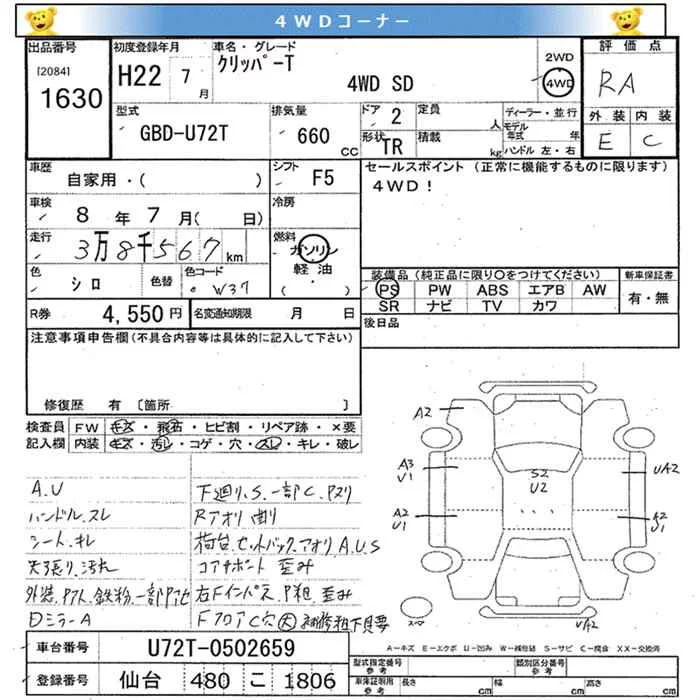 4WDコーナー
出品番号 初度登録年月 車名・グレード 2WD 評価点
[2084] H22 7月 クリッパーT 4WD SD 4WD RA
1630
型式 GBD-U72T 排気量 660 CC ドア 2 定員 人 ディーラー・並行 外装 内装
形状 TR 積載 kg モデル年式 年 E C
ハンドル 左・右
車歴 自家用・( ) シフト F5 セールスポイント (正常に機能するものに限ります)
4WD!
車検 8年7月( 日) 冷房
走行 3万8千567km 燃料 ガソリン
軽油
( )
色 シロ 色替 色コード W37
装備品(純正品に限り○をつけてください) 新車保証書
PS PW ABS エアB AW 有・無
SR ナビ TV カワ
R券 4,550円 名変通知期限 月 日 後日品
注意事項申告欄(不具合内容等は具体的に記入して下さい)
修復歴 有 [箇所 ]
検査員 FW キズ・飛石・ヒビ割・リペア跡・×要
記入欄 内装 キズ・汚レ・コゲ・穴・スレ・キレ・破レ
A.U 下廻り.S.一部C.Pヌリ
ハンドル.スレ Rアオリ曲り
シート.キレ 荷台.セットバック.アオリA.U.S
天張り.汚れ コアサポート歪み
外装.鉄粉.一部 左Fインパネ.P粗.歪み
Dミラ-A FフロアC穴大
A2
A3
U1
A2
U1
S2
U2
UA2
A2
U1
UA2
スマ
A-キズ E-エクボ U-凹み W-補修跡 S-サビ C-腐食 XX-交換済
車台番号 U72T-0502659 型式指定番号 参考 類別区分番号 参考
登録番号 仙台 480 こ 1806 車検証制用 参考 長さ cm 幅 cm 高さ cm